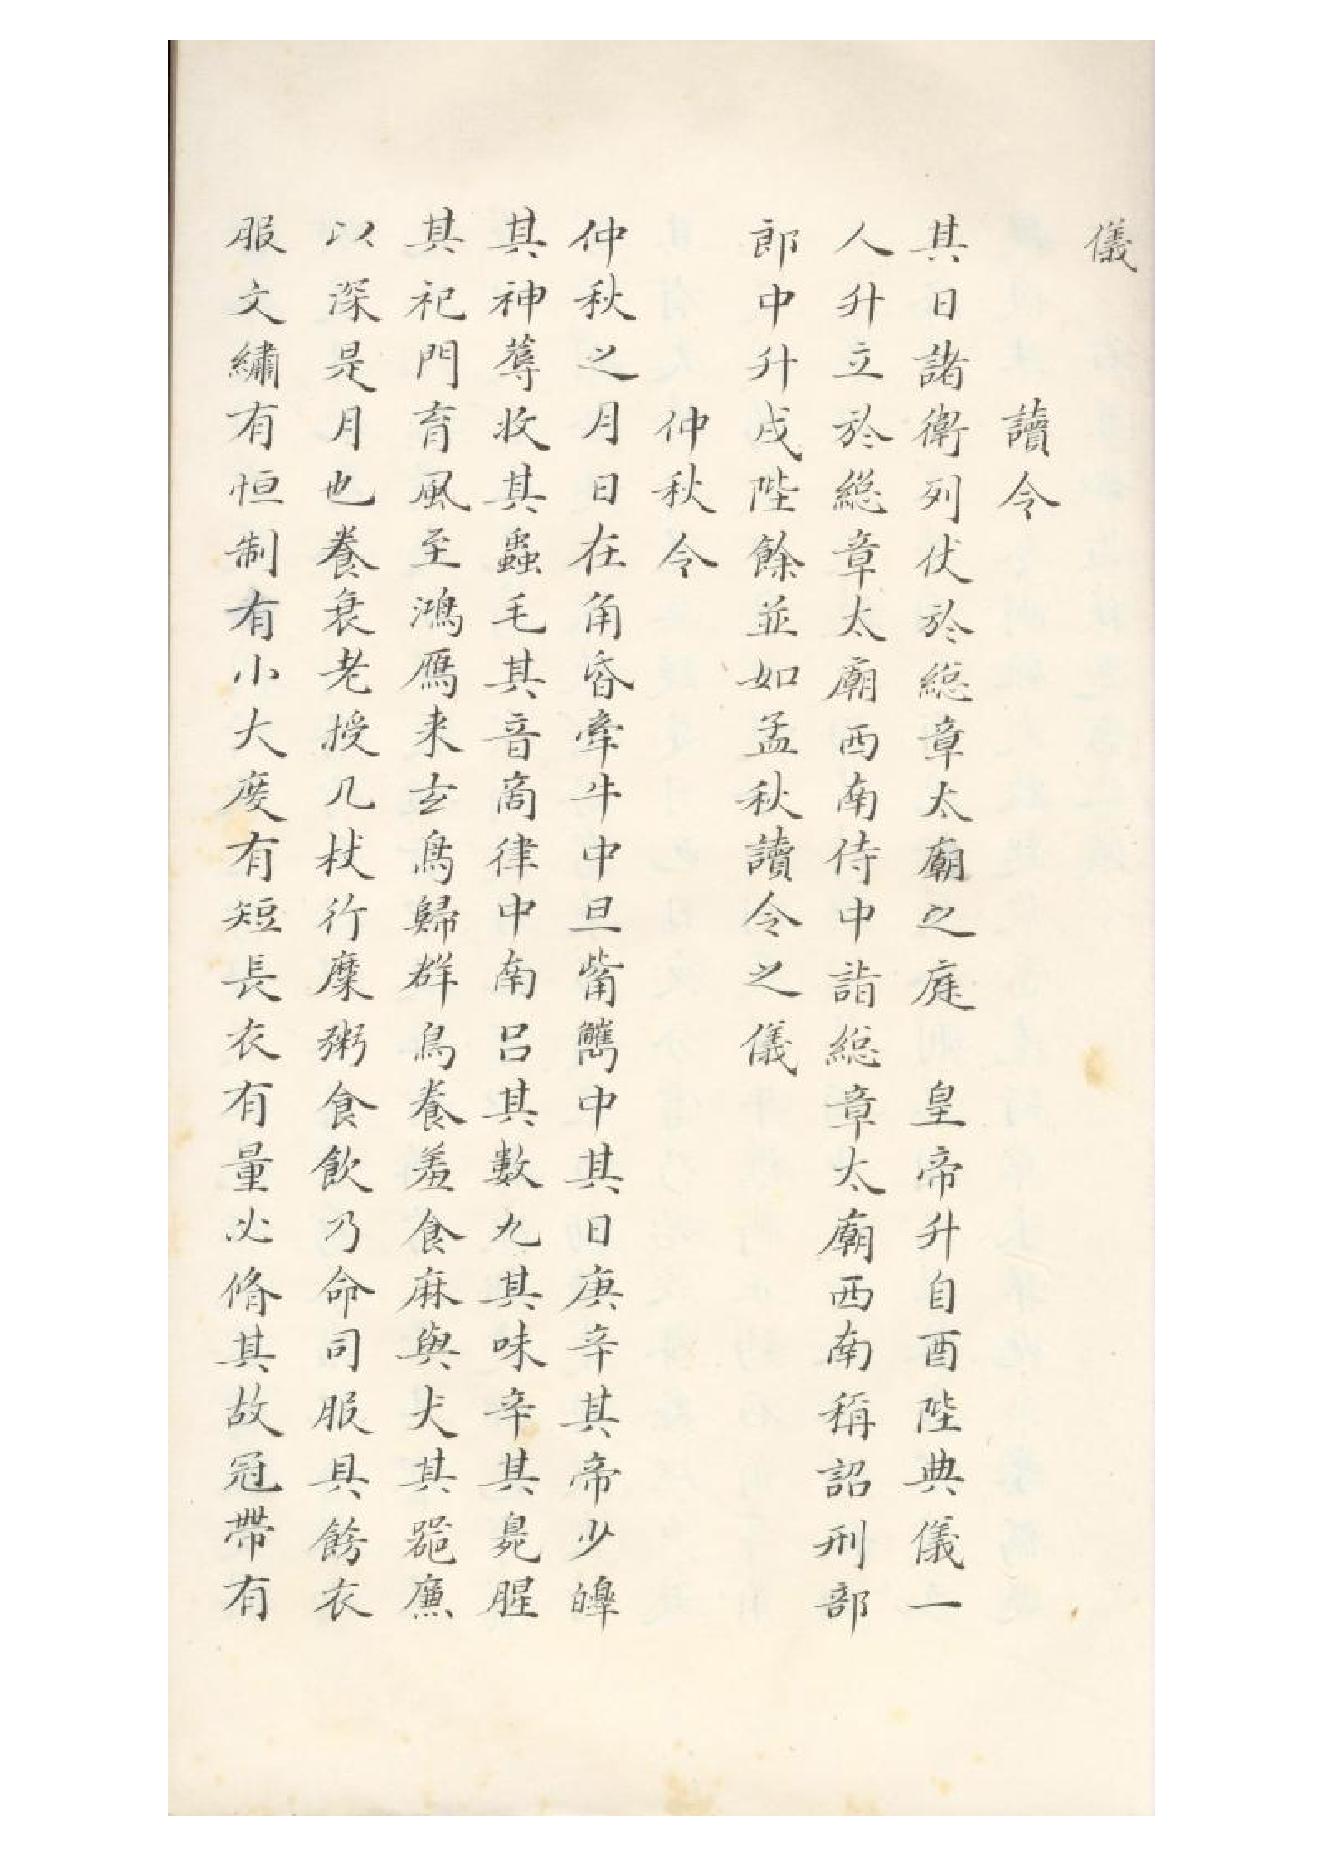 儀
讀令
其日諸衛列仗於緫章太廟之庭　皇帝升自酉陛典儀一
人升立於緫章太廟西南侍中詣緫章太廟西南稱詔刑部
郎中升戌陛餘並如孟秋讀令之儀
仲秋令
仲秋之月日在角昏牽牛中旦觜觿中其日庚辛其帝少皞
其神蓐收其蟲毛其音商律中南呂其數九其味辛其臭腥
其祀門育風至鴻鴈来玄鳥歸群鳥養羞食麻與犬其器廉
以深是月也養衰老授几杖行糜粥食飲乃命司服具飭衣
服文繡有恒制有小大度有短長衣有量必脩其故冠帶有